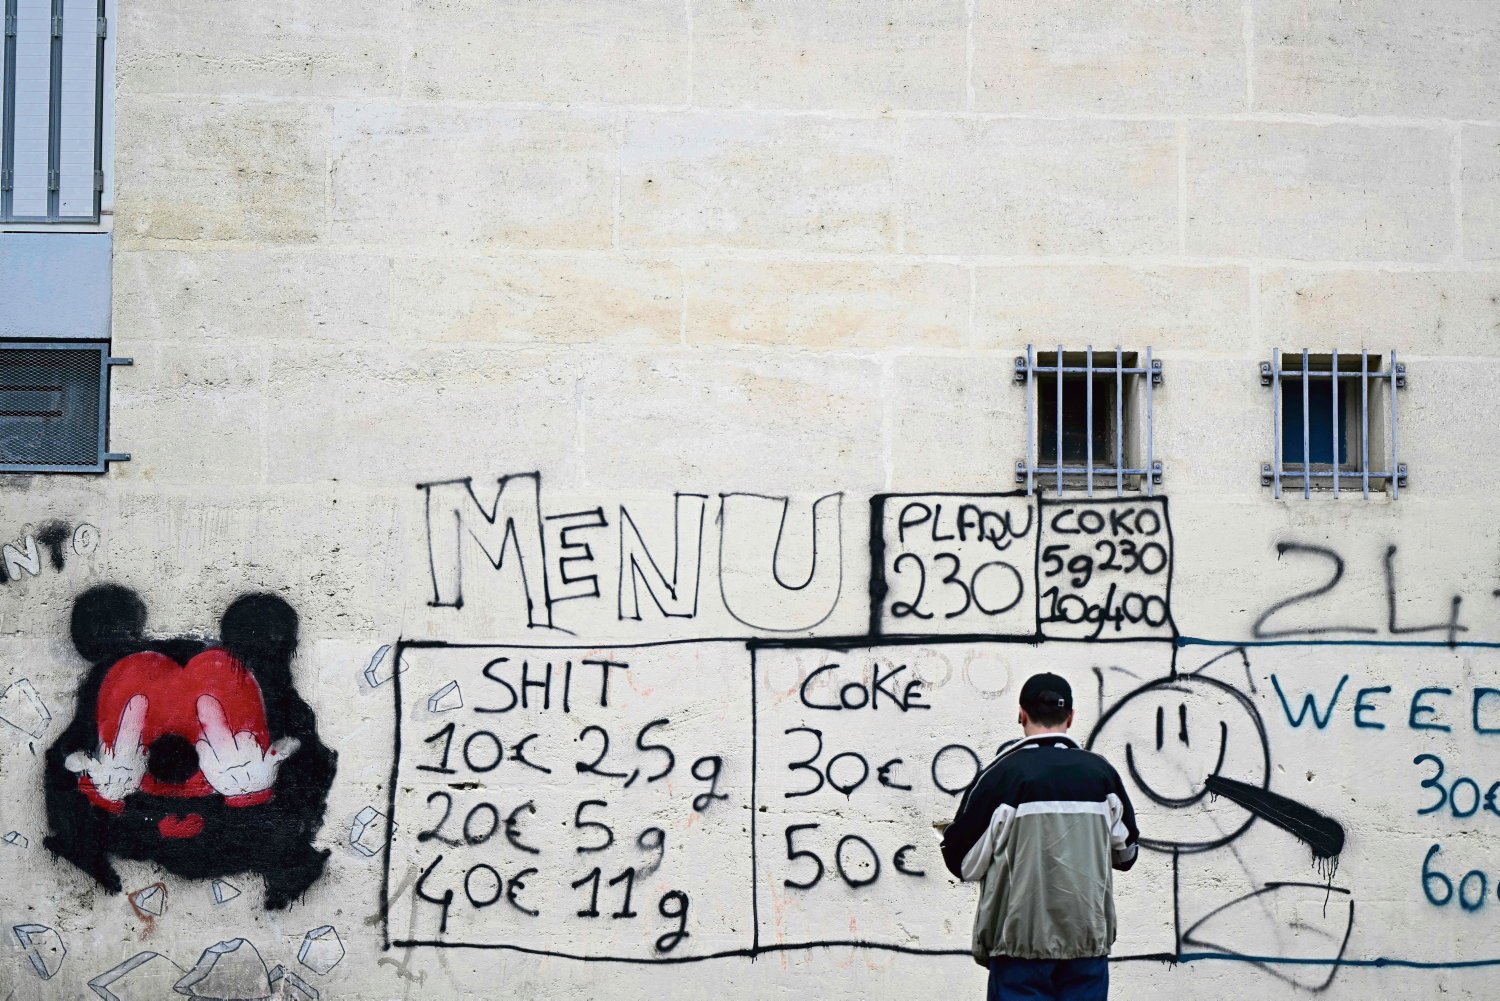 MENU
PLAQU
230
COKO
5g 230
10g 400
SHIT
10€ 2,5g
20€ 5g
40€ 11g
COKE
30€ 0
50€
WEED
30€
60€